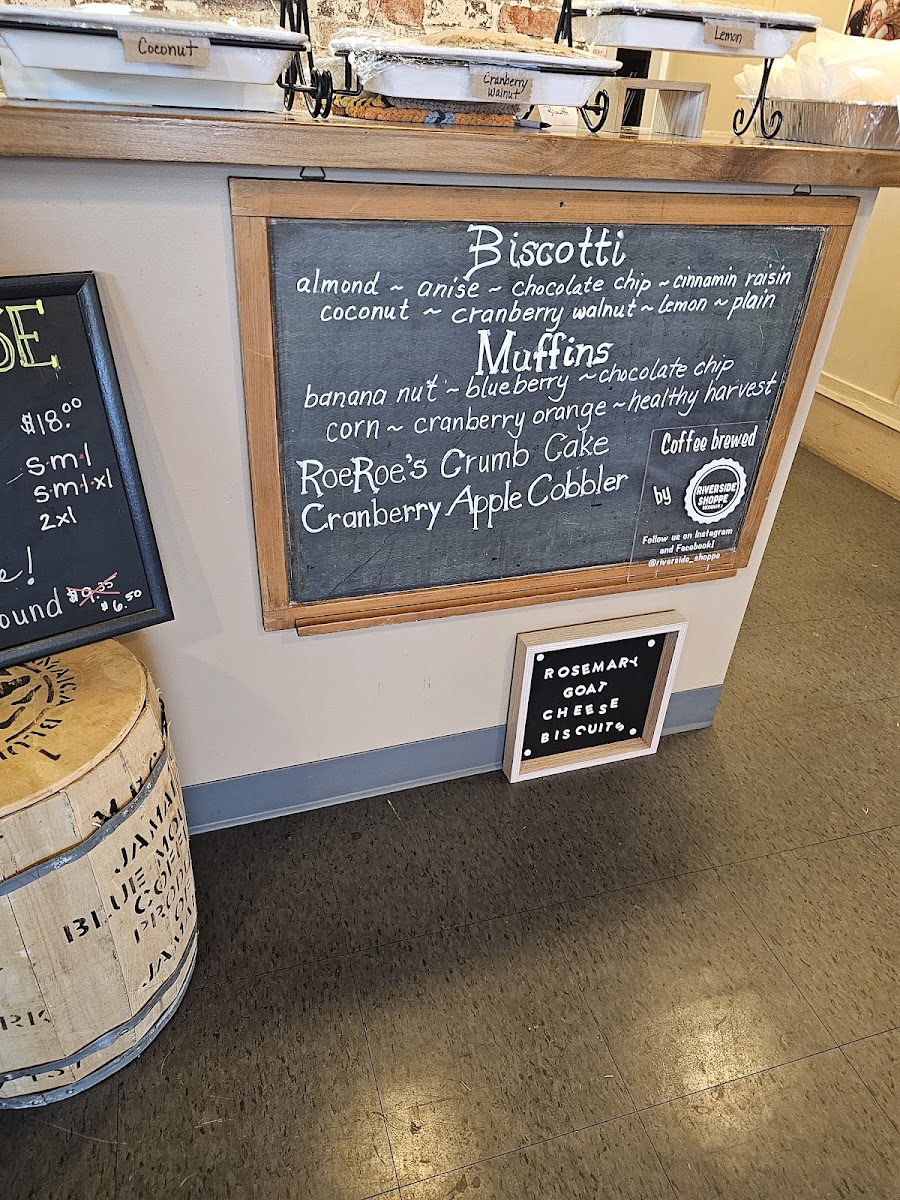 Coconut
Cranberry
Walnut
Lemon
Biscotti
almond ~ anise ~ chocolate chip ~ cinnamin raisin
coconut ~ cranberry walnut ~ Lemon ~ plain
Muffins
banana nut ~ blueberry ~ chocolate chip
corn ~ cranberry orange ~ healthy harvest
RoeRoe's Crumb Cake
Cranberry Apple Cobbler
Coffee brewed
by
RIVERSIDE
SHOPPE
Follow us on Instagram
and Facebook!
@riverside_shoppe
ROSEMARY
GOAT
CHEESE
BISCUITS
SE
$18.00
s·m·l
s·m·l·xl
2xl
e!
ound $9.95
$6.50
JAMAICA BLUE
JAMA
BLUE MOU
COFF
PROD
JAMA